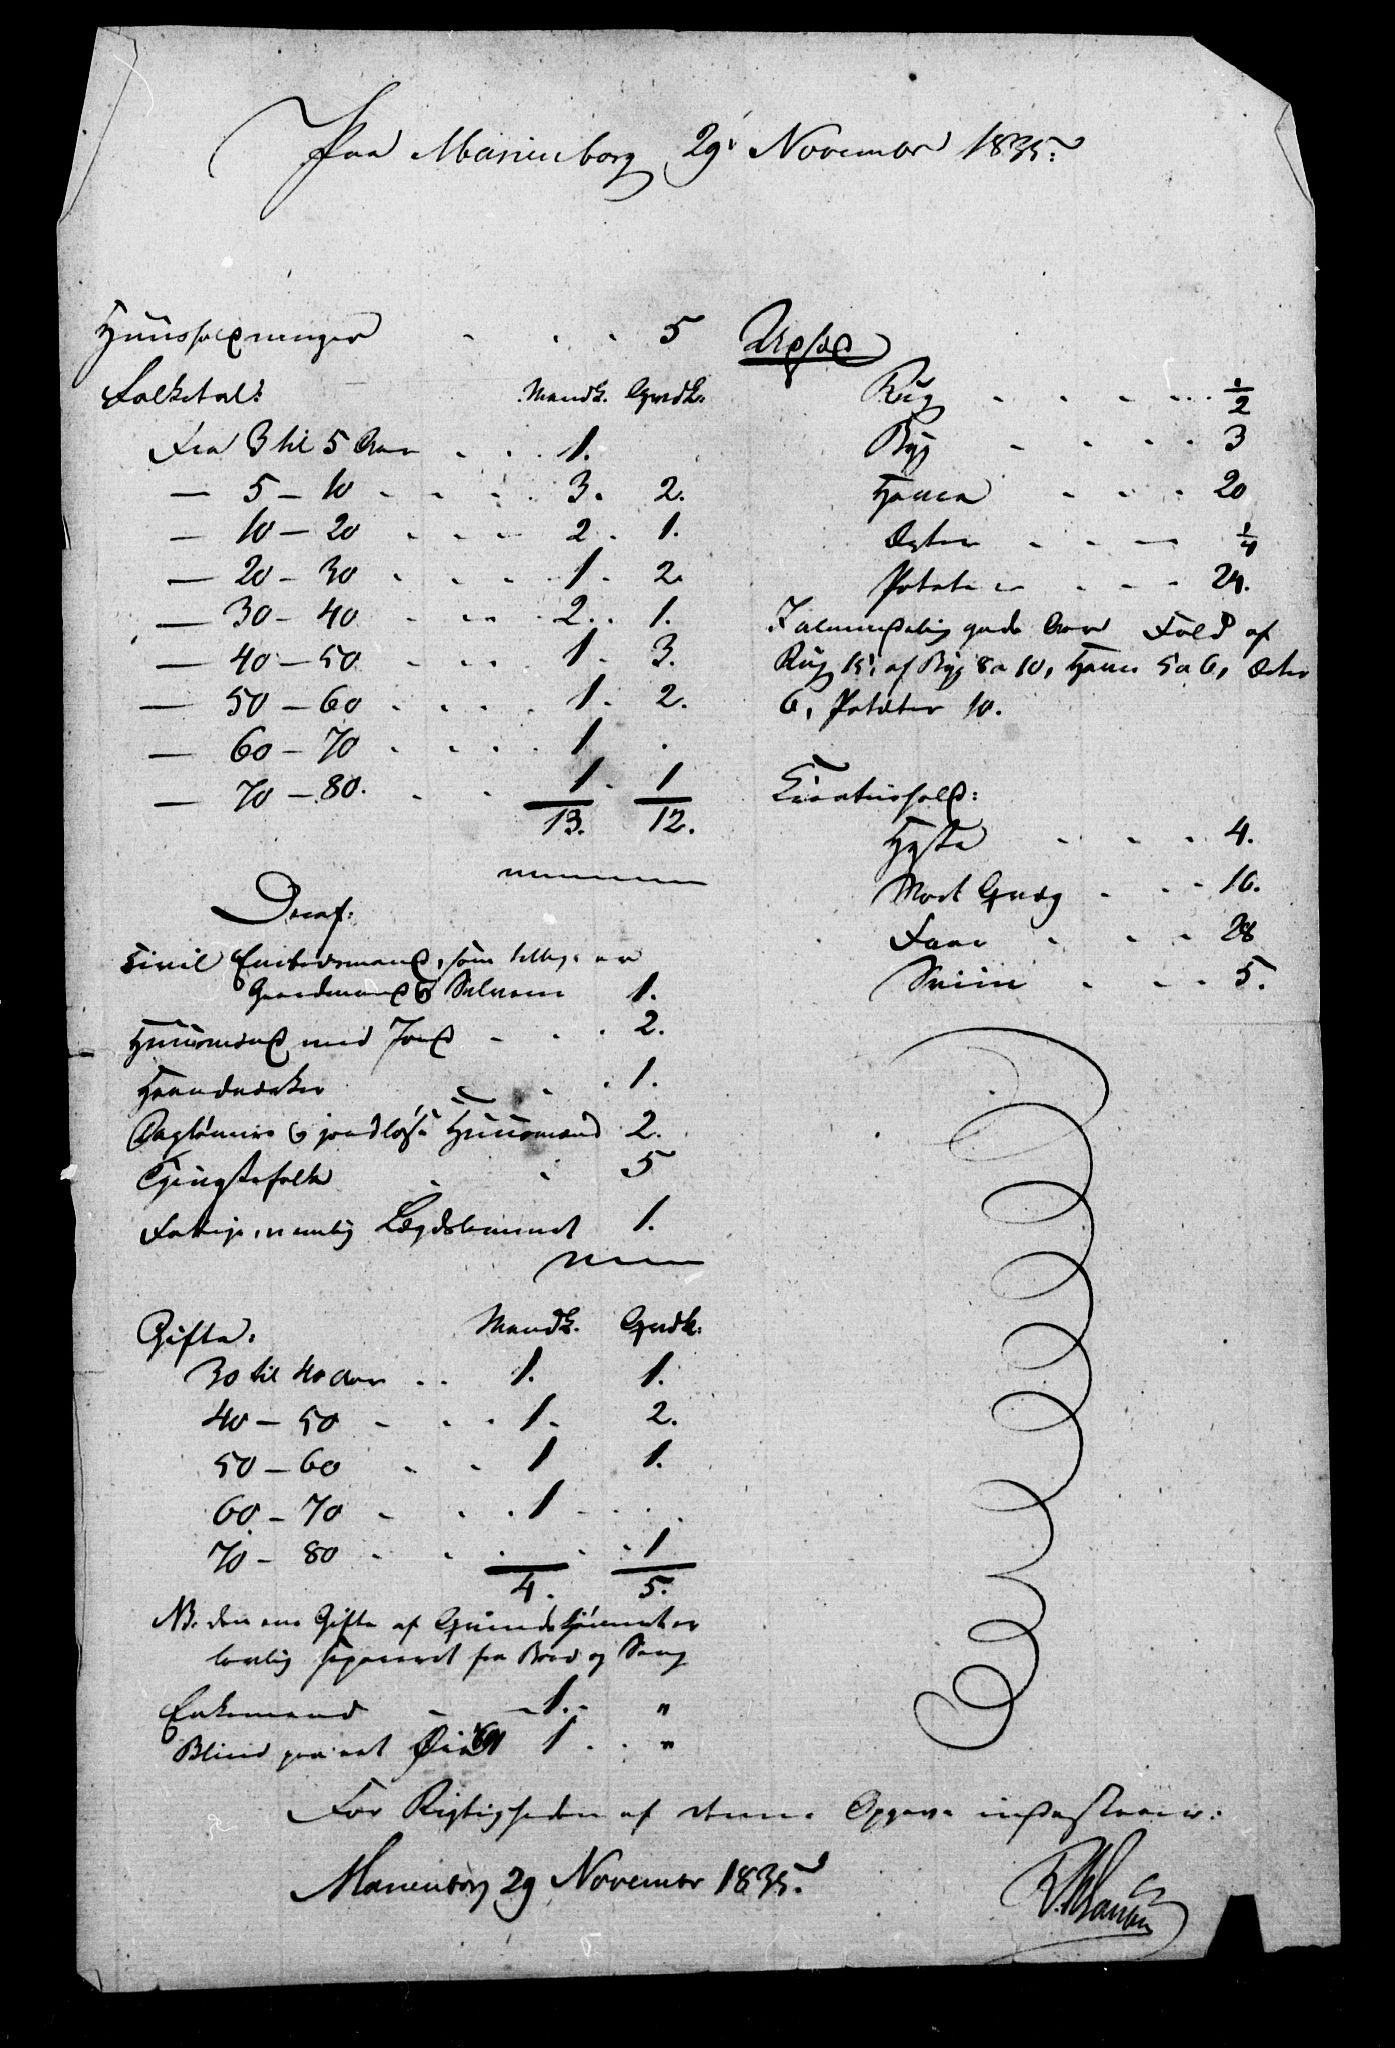 Paa Marienborg 29 November 1835.
Huusholdninger . . . 5
Folketal: Mandk. Qvdk.
Fra 3 til 5 Aar . . 1.
— 5 — 10 . . . . 3. 2.
— 10 — 20 . . . . 2. 1.
— 20 — 30 . . . . 1. 2.
— 30 — 40 . . . . 2. 1.
— 40 — 50 . . . . 1. 3.
— 50 — 60 . . . . 1. 2.
— 60 — 70 . . . . 1 .
— 70 — 80. . . 1. 1
13. 12.
Deraf:
Civil Embedsmand, som tillige er
Gaardmand og Selveier 1.
Huusmænd med Jord . . . 2.
Haandværker . . . 1.
Daglønnere og jordløse Huusmænd 2.
Tjenestefolk . . 5
Fattige, nemlig Lægdslemmet 1.
Gifte: Mandk. Qvdk.
30 til 40 Aar . . 1. 1.
40 — 50 . . . 1. 2.
50 — 60 . . 1 1.
60 — 70 . . . 1 . . .
70 — 80 . . . . . 1
4. 5.
NB. den ene Gifte af Qvindekjønnet er
lovlig separeret fra Bord og Seng
Enkemænd . . 1. "
Blind paa eet Øie 1 . . "
Udsæd
Rug . . . . . 1/2
Byg . . . . 3
Havre . . . 20
Erter . . . . 1/4
Poteter . . . 24.
I almindelig gode Aar Fold af
Rug 15, af Byg 8 a 10, Havre 5 a 6, Erter
6, Poteter 10.
Creaturhold:
Heste . . . 4.
Stort Qvæg . . . 16.
Faar . . . 28
Sviin . . . 5.
For Rigtigheden af denne Opgave indestaaer:
Marienborg 29 November 1835.